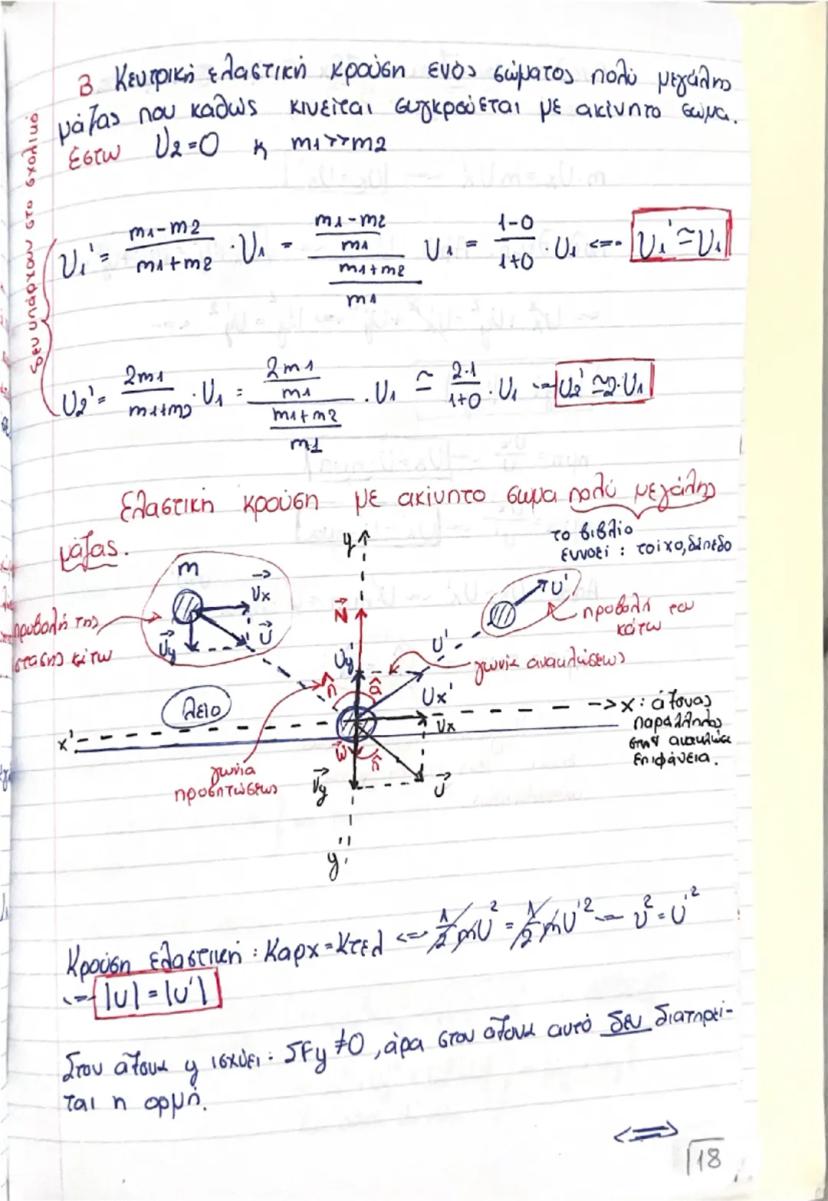 Β. Κεντρική ελαστική κρούση ενός σώματος πολύ μεγάλης
μάζας που καθώς κινείται συγκρούεται με ακίνητο σώμα.
Έστω U2=0 κ m1>>m2
δεν υπάρχουν στο σχολικό
U1' = (m1-m2)/(m1+m2) · U1 = ((m1-m2)/m1)/((m1+m2)/m1) U1 = (1-0)/(1+0) · U1 <=> U1' ≃ U1
U2' = 2m1/(m1+m2) · U1 = (2m1/m1)/((m1+m2)/m1) · U1 ≃ 2·1/(1+0) · U1 ⇒ U2' ≃ 2·U1
Ελαστική κρούση με ακίνητο σώμα πολύ μεγάλης
μάζας.
το βιβλίο
εννοεί: τοίχο, δάπεδο
y
m
Ux
U
Uy
προβολή της
στασης κάτω
N
U'
προβολή του
κάτω
Uy'
U'
γωνία ανακλάσεως
π̂
α̂
Ux'
λείο
x'
Ux
x: άξονας
παράλληλος
στην ανακλώσα
επιφάνεια.
γωνία
προσπτώσεως
W
π̂
Uy
U
y'
Κρούση ελαστική: Καρχ=Κτελ <=> 1/2 mU² = 1/2 mU'² <=> U² = U'²
<=> |U| = |U'|
Στον άξονα y ισχύει: ΣFy ≠ 0, άρα στον άξονα αυτό δεν διατηρεί-
ται η ορμή.
<=>
18